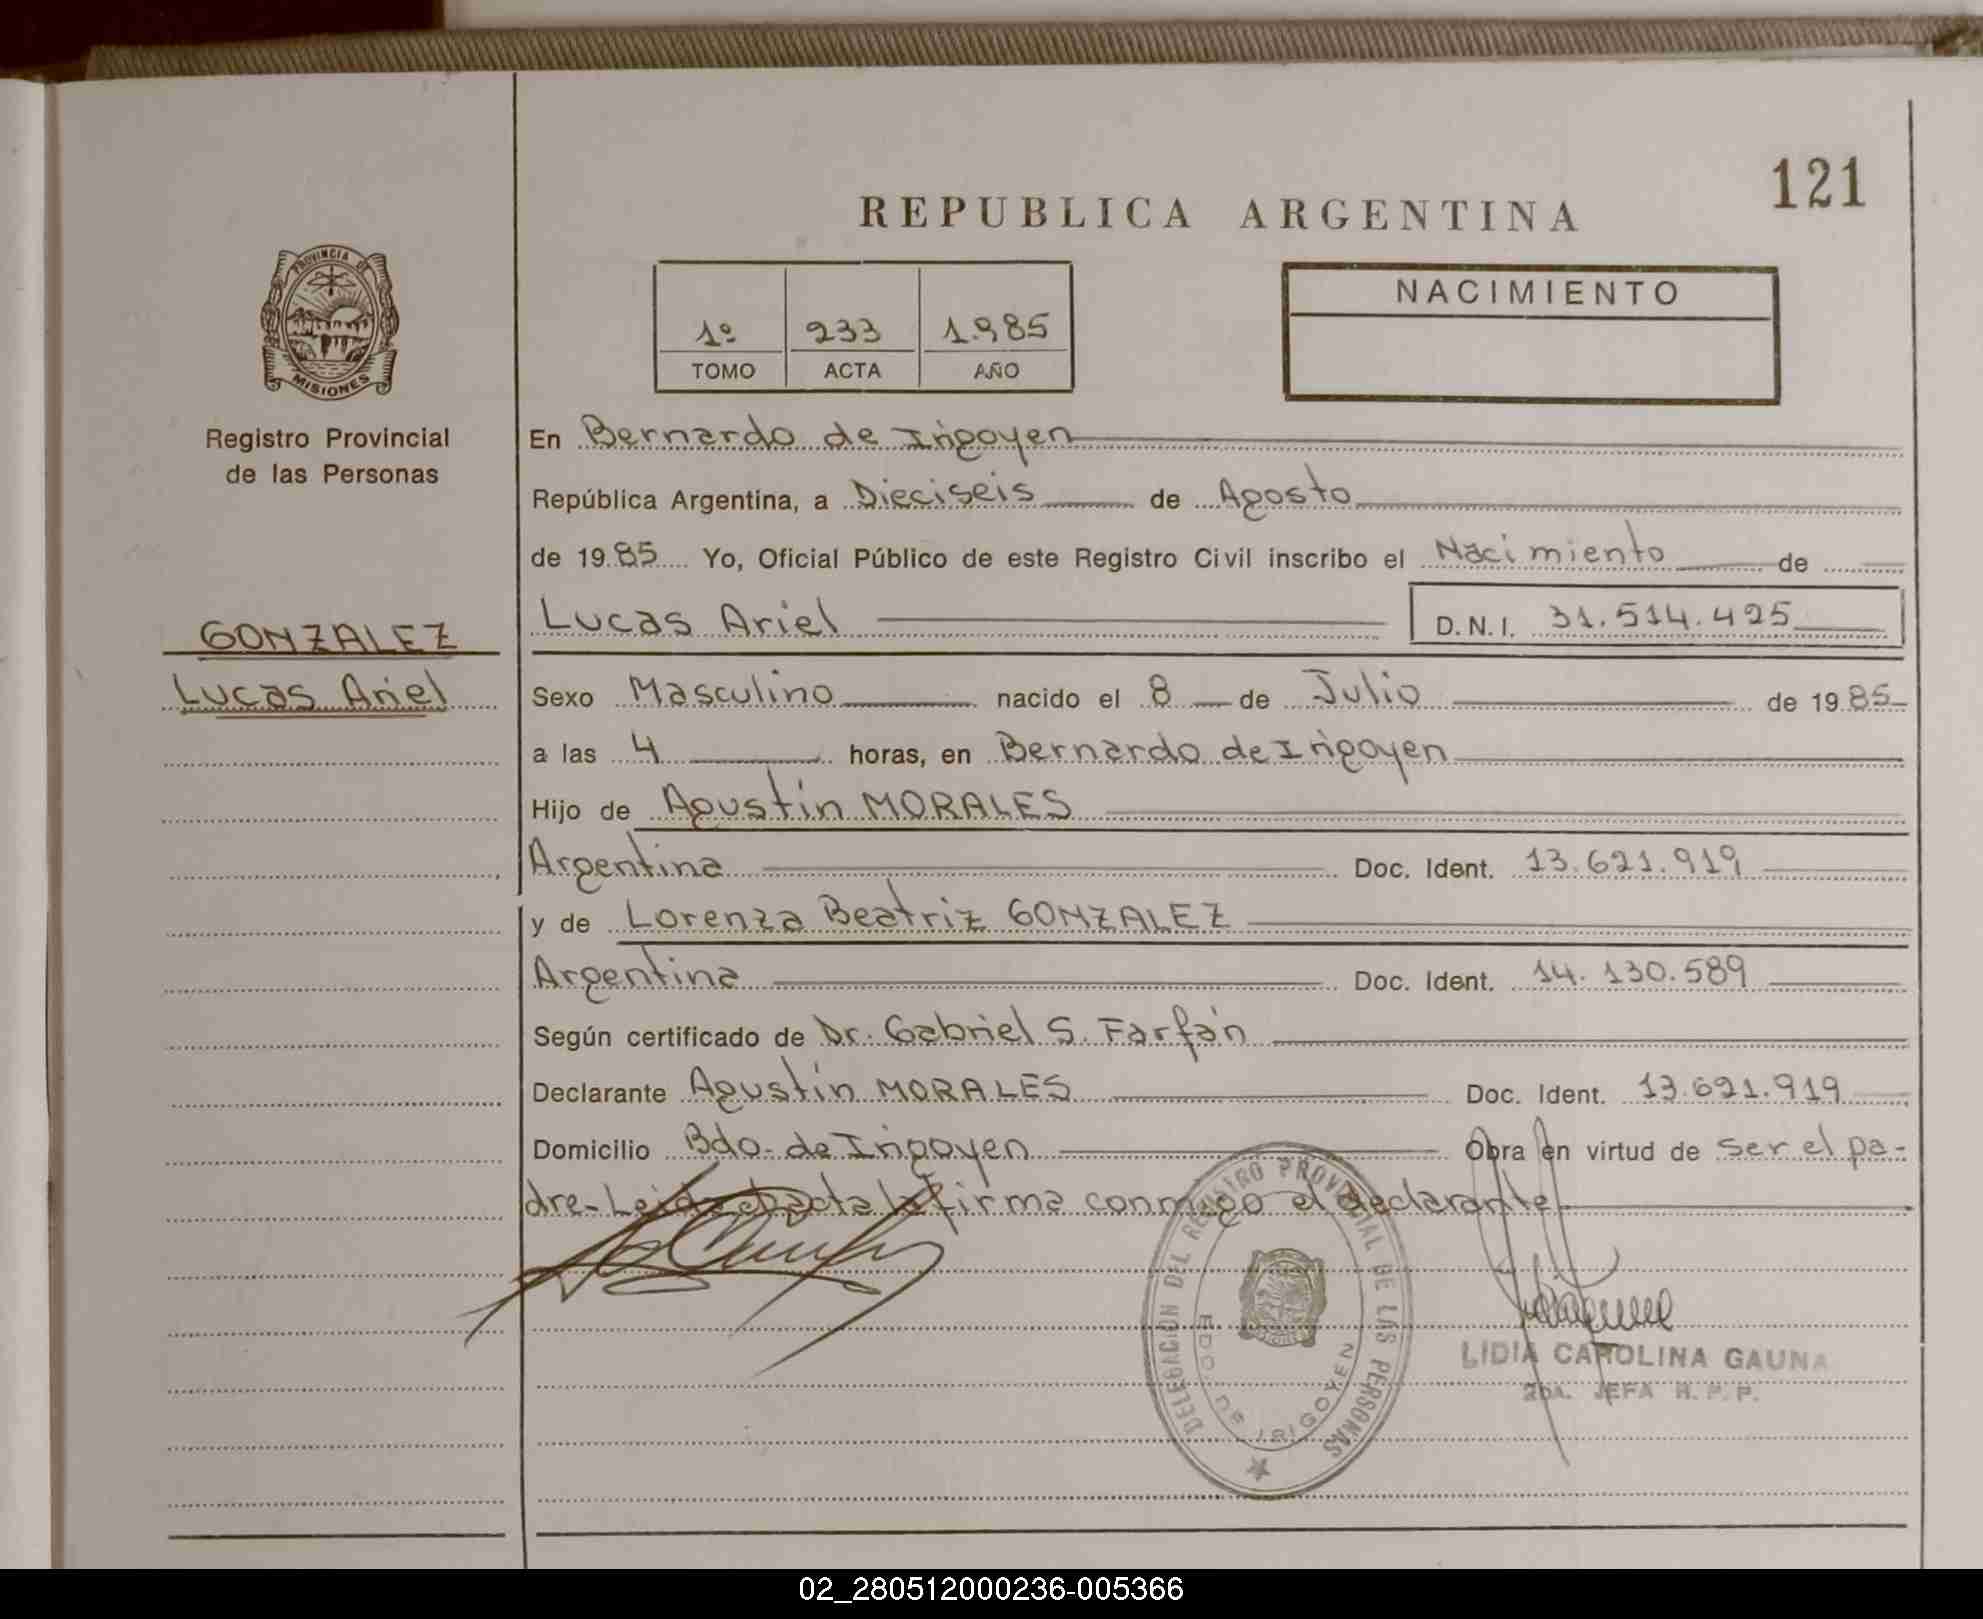 121
REPUBLICA ARGENTINA
PROVINCIA DE
MISIONES
Registro Provincial
de las Personas
1º 233 1.985
TOMO ACTA AÑO
NACIMIENTO
En Bernardo de Irigoyen
República Argentina, a Dieciseis de Agosto
de 19 85 Yo, Oficial Público de este Registro Civil inscribo el Nacimiento de
GONZALEZ
Lucas Ariel
Lucas Ariel D.N.I. 31.514.425
Sexo Masculino nacido el 8 de Julio de 19 85
a las 4 horas, en Bernardo de Irigoyen
Hijo de Agustín MORALES
Argentina Doc. Ident. 13.621.919
y de Lorenza Beatriz GONZALEZ
Argentina Doc. Ident. 14.130.589
Según certificado de Dr. Gabriel S. Farfán
Declarante Agustín MORALES Doc. Ident. 13.621.919
Domicilio Bdo. de Irigoyen Obra en virtud de ser el pa-
dre- Leida el acta la firma conmigo el declarante
DELEGACION DEL REGISTRO PROVINCIAL DE LAS PERSONAS
BDO. DE IRIGOYEN
LIDIA CAROLINA GAUNA
2DA. JEFA R. P. P.
02_280512000236-005366